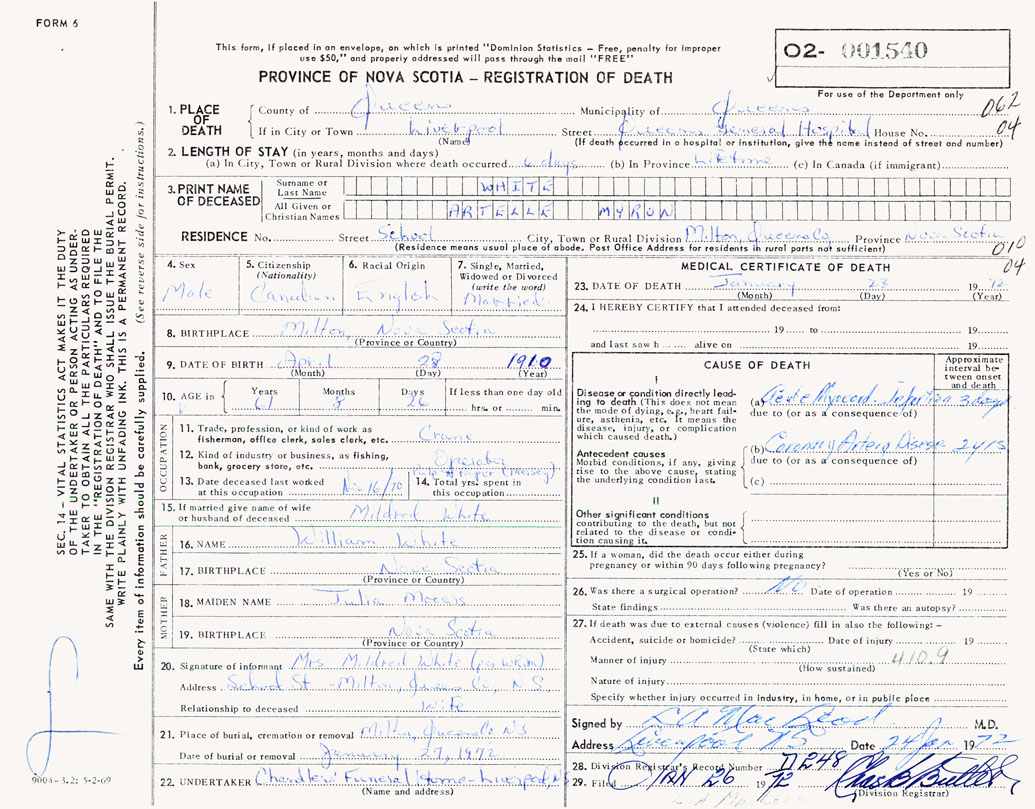 FORM 6
This form, if placed in an envelope, on which is printed "Dominion Statistics – Free, penalty for improper
use $50," and properly addressed will pass through the mail "FREE"
PROVINCE OF NOVA SCOTIA – REGISTRATION OF DEATH
02- 001540
For use of the Department only
062
04
1. PLACE OF DEATH
County of Queens Municipality of Queens
If in City or Town Liverpool Street Queens General Hospital House No.
(Name) (If death occurred in a hospital or institution, give the name instead of street and number)
2. LENGTH OF STAY (in years, months and days)
(a) In City, Town or Rural Division where death occurred 6 days (b) In Province Lifetime (c) In Canada (if immigrant)
3. PRINT NAME OF DECEASED
Surname or Last Name WHITE
All Given or Christian Names ARTELLE MYRON
RESIDENCE No. Street School City, Town or Rural Division Milton, Queens Co Province Nova Scotia
(Residence means usual place of abode. Post Office Address for residents in rural parts not sufficient)
010
04
4. Sex
Male
5. Citizenship
(Nationality)
Canadian
6. Racial Origin
English
7. Single, Married,
Widowed or Divorced
(write the word)
Married
8. BIRTHPLACE Milton, Nova Scotia
(Province or Country)
9. DATE OF BIRTH April 28 1910
(Month) (Day) (Year)
10. AGE in Years Months Days If less than one day
61 8 26 hrs. or min.
OCCUPATION
11. Trade, profession, or kind of work as
fisherman, office clerk, sales clerk, etc. Crane
12. Kind of industry or business, as fishing,
bank, grocery store, etc. Operator
Paper (Mersey)
13. Date deceased last worked
at this occupation Nov 16/70
14. Total yrs. spent in
this occupation
15. If married give name of wife
or husband of deceased Mildred White
FATHER
16. NAME William White
17. BIRTHPLACE Nova Scotia
(Province or Country)
MOTHER
18. MAIDEN NAME Julia
19. BIRTHPLACE Nova Scotia
(Province or Country)
20. Signature of informant Mrs Mildred White (per WRJM)
Address School St – Milton, Queens Co, N.S.
Relationship to deceased Wife
21. Place of burial, cremation or removal Milton, Queens Co NS
Date of burial or removal January 27, 1972
22. UNDERTAKER Chandlers' Funeral Home – Liverpool, NS
(Name and address)
MEDICAL CERTIFICATE OF DEATH
23. DATE OF DEATH January 23 1972
(Month) (Day) (Year)
24. I HEREBY CERTIFY that I attended deceased from:
19 to 19
and last saw h alive on 19
CAUSE OF DEATH
Approximate interval between onset and death
I
Disease or condition directly lead-
ing to death (This does not mean
the mode of dying, e.g., heart fail-
ure, asthenia, etc. It means the
disease, injury, or complication
which caused death.)
(a) Acute Myocard Infarction 3 days
due to (or as a consequence of)
Antecedent causes
Morbid conditions, if any, giving
rise to the above cause, stating
the underlying condition last.
(b) Coronary Artery Disease 2 yrs
due to (or as a consequence of)
(c)
II
Other significant conditions
contributing to the death, but not
related to the disease or condi-
tion causing it.
25. If a woman, did the death occur either during
pregnancy or within 90 days following pregnancy?
(Yes or No)
26. Was there a surgical operation? No Date of operation 19
State findings Was there an autopsy?
27. If death was due to external causes (violence) fill in also the following: –
Accident, suicide or homicide? Date of injury 19
(State which)
Manner of injury 410.9
(How sustained)
Nature of injury
Specify whether injury occurred in industry, in home, or in public place
Signed by M.D.
Address Liverpool NS Date 24 Jan 1972
28. Division Registrar's Record Number D248
29. Filed JAN 26 1972
(Division Registrar)
SEC. 14 – VITAL STATISTICS ACT MAKES IT THE DUTY
OF THE UNDERTAKER OR PERSON ACTING AS UNDER-
TAKER TO OBTAIN ALL THE PARTICULARS REQUIRED
IN THE "REGISTRATION OF DEATH" AND TO FILE THE
SAME WITH THE DIVISION REGISTRAR WHO SHALL ISSUE THE BURIAL PERMIT.
WRITE PLAINLY WITH UNFADING INK. THIS IS A PERMANENT RECORD.
Every item of information should be carefully supplied. (See reverse side for instructions.)
9004-3.2: 5-2-69